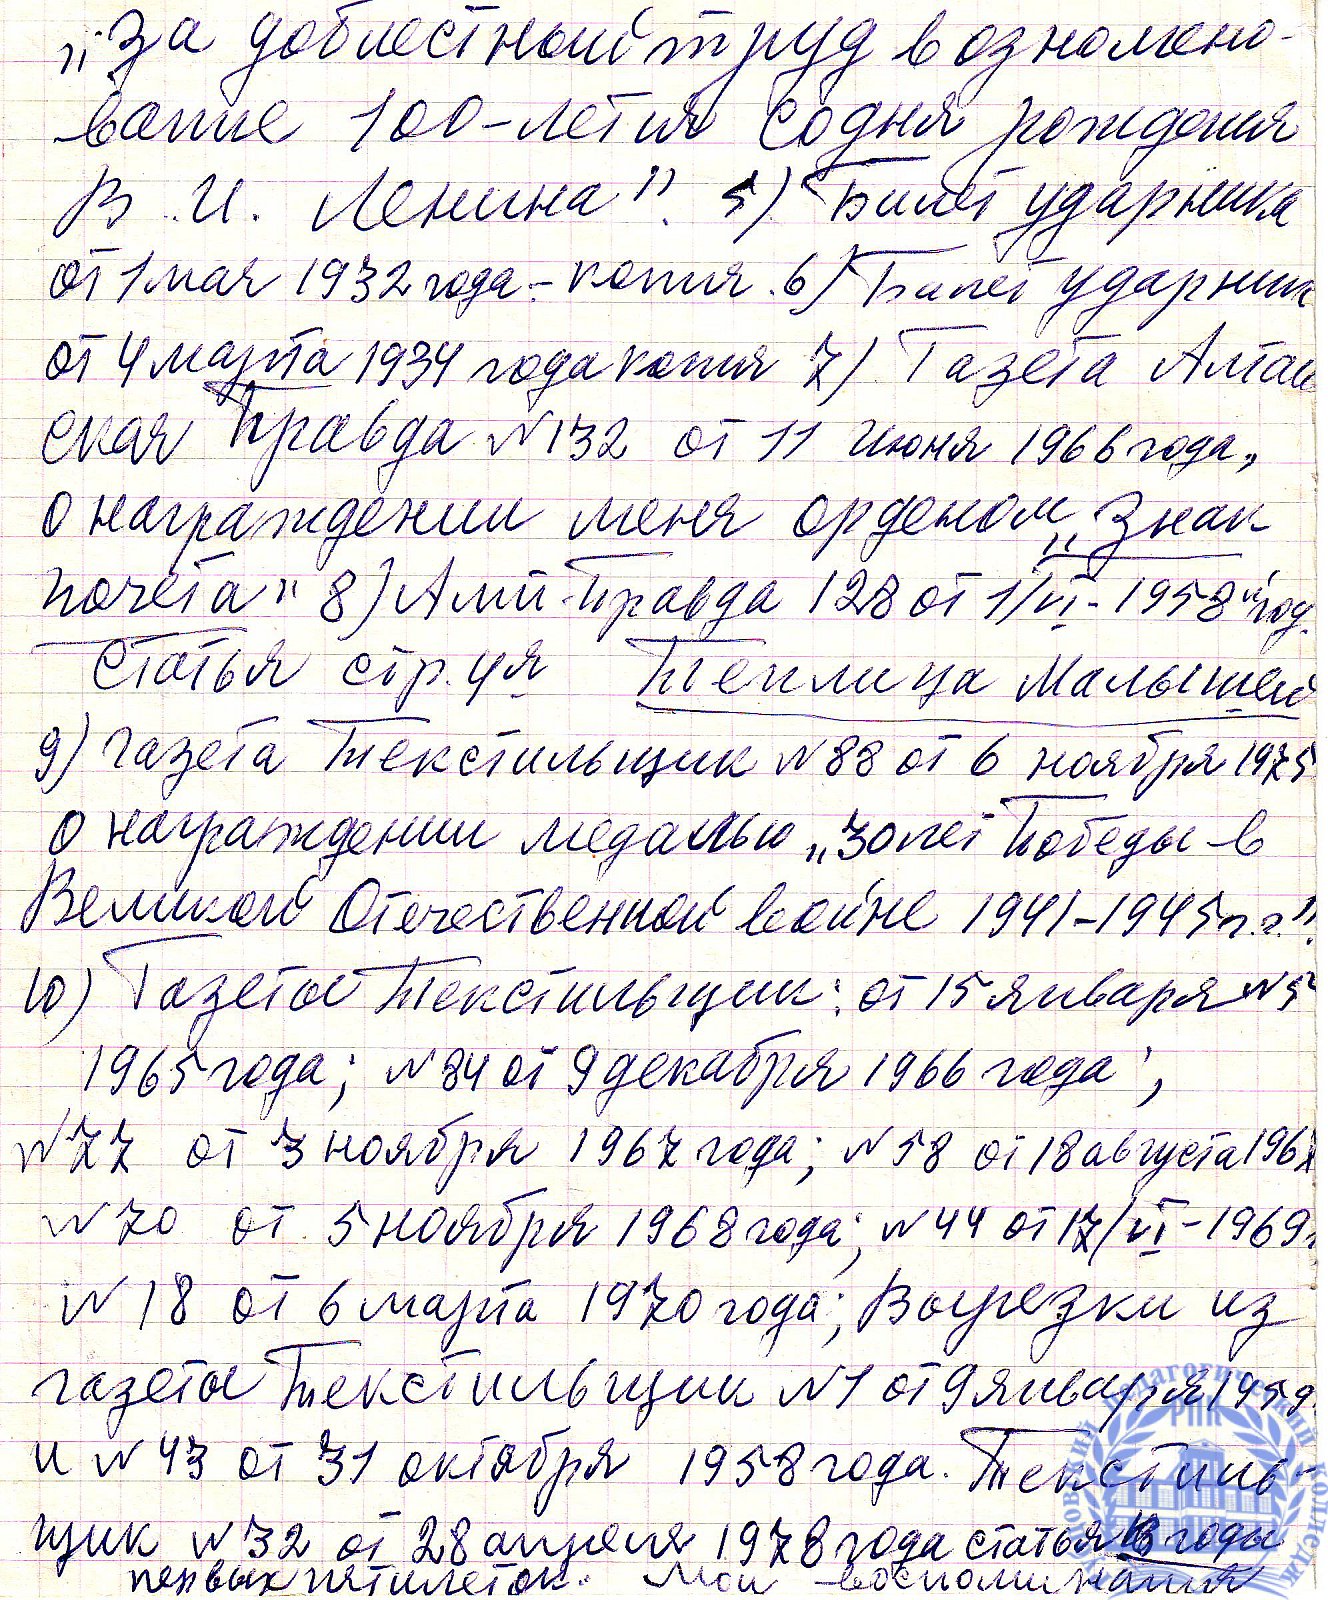 „За доблестный труд в озномено-
вание 100-летия со дня рождения
В. И. Ленина". 5) Билет ударника
от 1 мая 1932 года - копия. 6) Билет ударник
от 4 марта 1934 года копия 7) Газета Алтай
ская Правда №132 от 11 июня 1966 года,
о награждении меня орденом „Знак
почета" 8) Алт-Правда 128 от 1/VI-1958 год.
Статья стр. 4я Теплица Малышей
9) газета Текстильщик №88 от 6 ноября 1975
о награждении медалью „30 лет Победы в
Великой Отечественной войне 1941-1945 г.г."
10) Газеты Текстильщик: от 15 января №5
1965 года; №84 от 9 декабря 1966 года;
№77 от 3 ноября 1967 года; №58 от 18 августа 1967
№70 от 5 ноября 1968 года; №44 от 17/VI-1969г
№18 от 6 марта 1970 года; Вырезки из
газеты Текстильщик №1 от 9 января 1959
и №43 от 31 октября 1958 года. Текстиль-
щик №32 от 28 апреля 1978 года статья В годы
первых пятилеток. Мои воспоминания
педагогический колледж
РПК